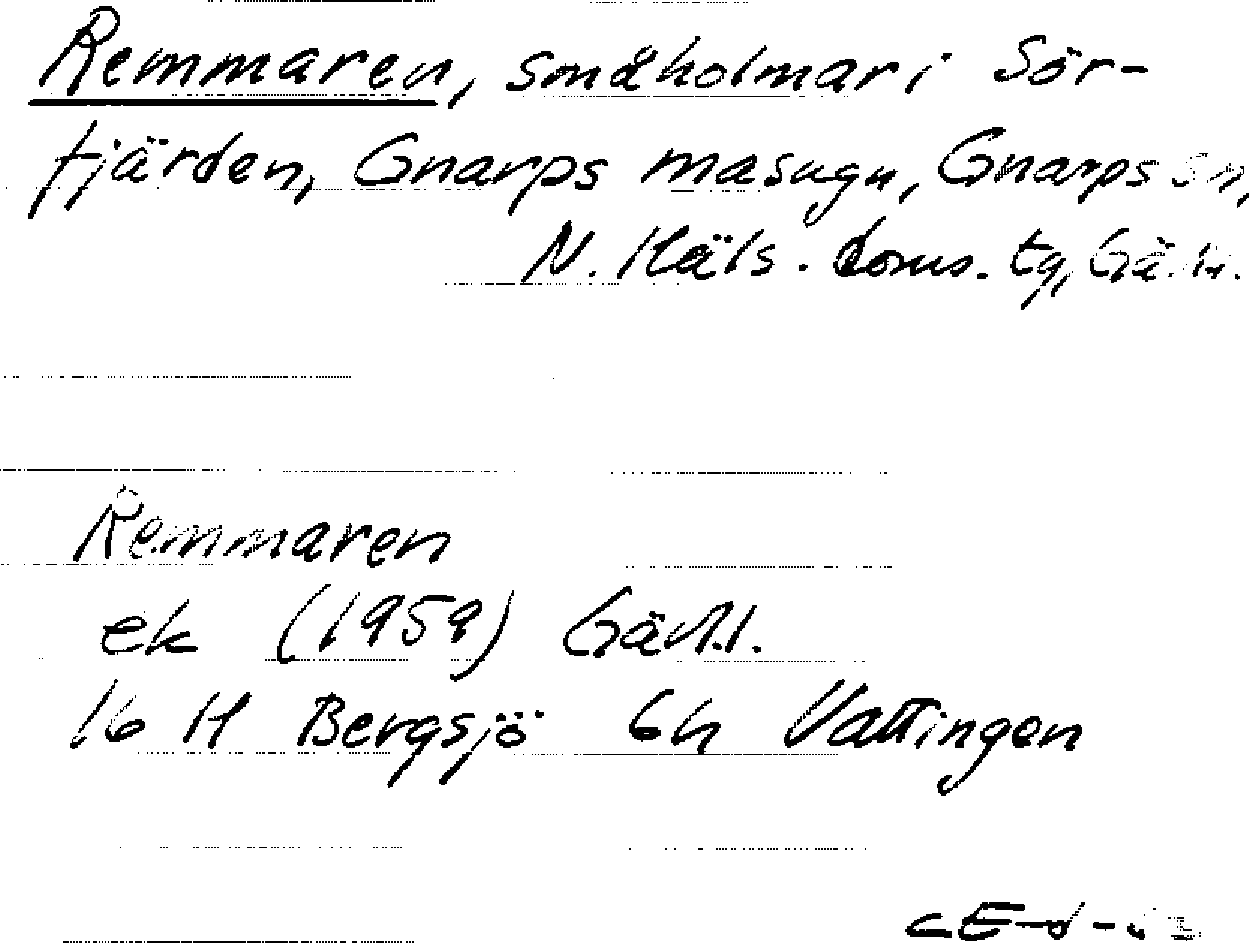 Remmaren, småholmar i Sör-
fjärden, Gnarps masugn, Gnarps sn,
N. Häls. doms. tg, Gä.l.
Remmaren
ek (1959) Gävl.l.
16 H Bergsjö 6h Vattingen